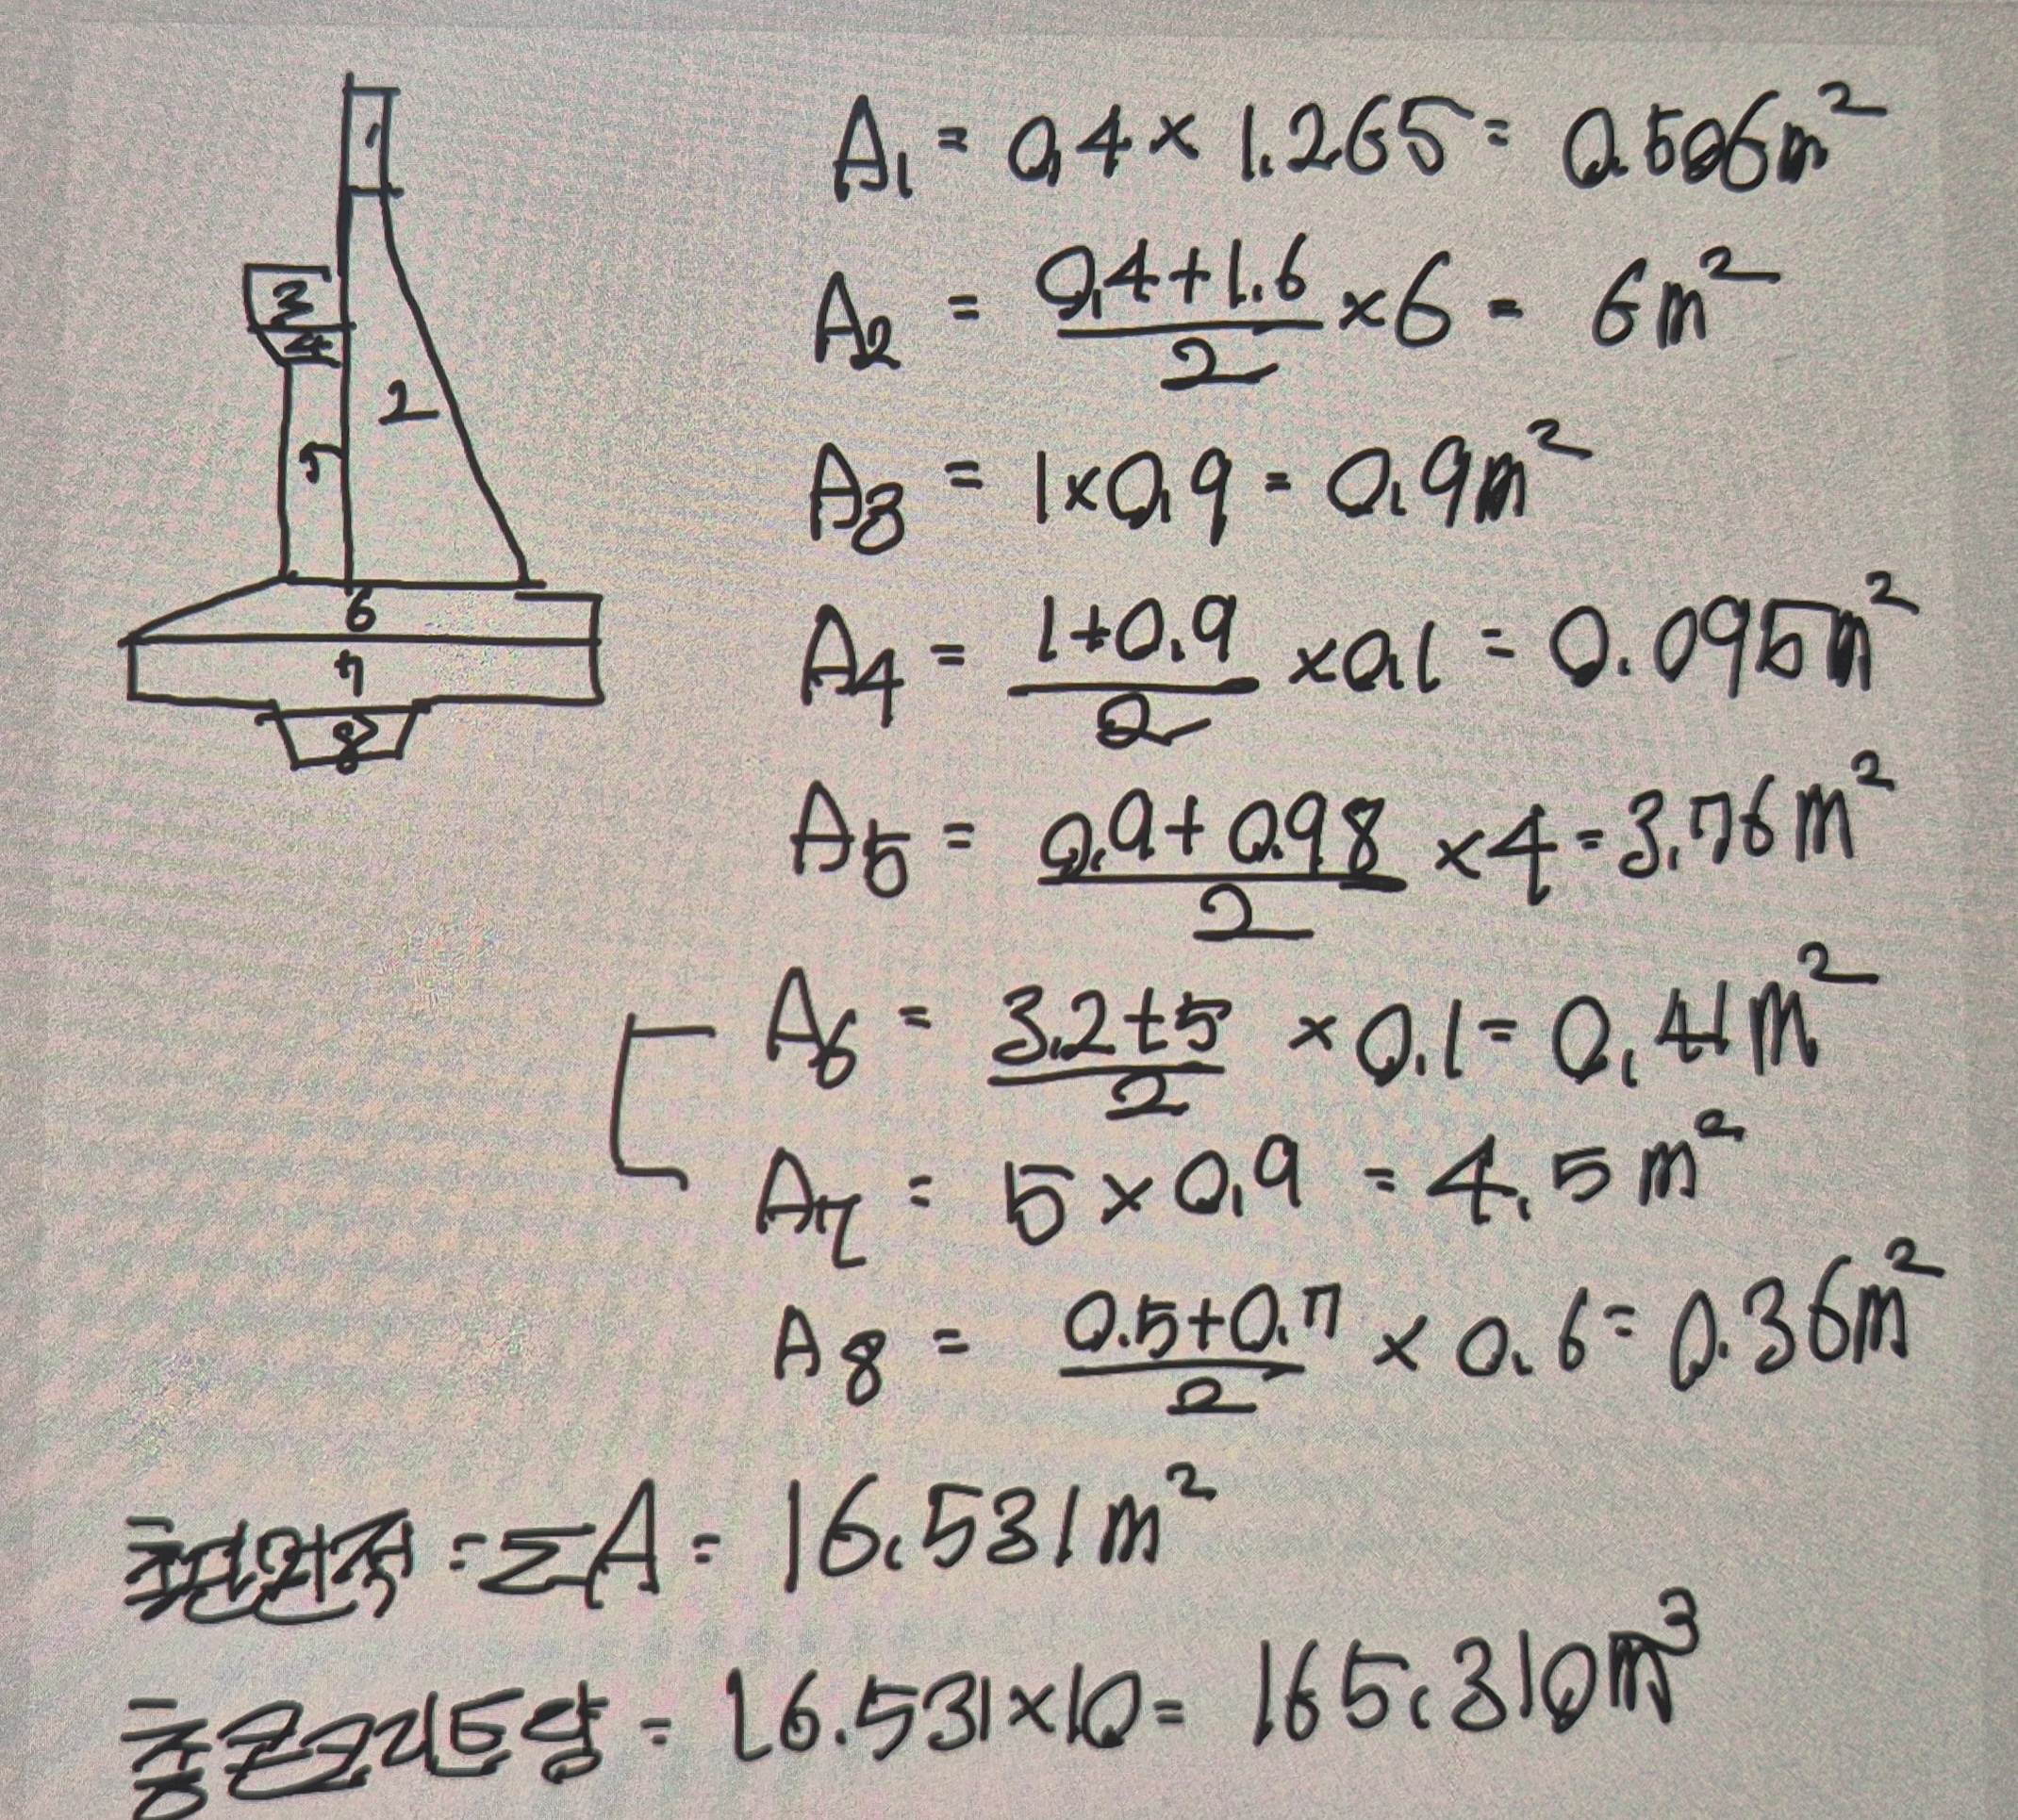 1
3
4
2
5
6
7
8
A1 = 0.4 × 1.265 = 0.506m²
A2 = (0.4+1.6)/2 ×6 = 6m²
A3 = 1×0.9 = 0.9m²
A4 = (1+0.9)/2 ×0.1 = 0.095m²
A5 = (0.9+0.98)/2 ×4 = 3.76m²
A6 = (3.2+5)/2 ×0.1 = 0.41m²
A7 = 5×0.9 = 4.5m²
A8 = (0.5+0.7)/2 × 0.6 = 0.36m²
측면면적 = ΣA = 16.531m²
총콘크리트량 = 16.531×10 = 165.310m³